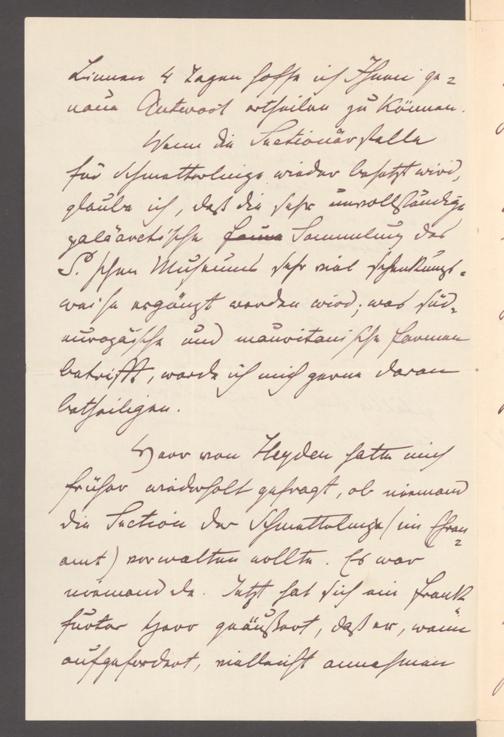 binnen 4 Tagen hoffe ich Ihnen ge=
naue Antwort ertheilen zu können.
Wenn die Sectionärstelle
für Schmetterlinge wieder besetzt wird,
glaube ich, daß die sehr unvollständige
paläarctische Fauna Sammlung des
S.'schen Museums sehr viel schenkungs=
weise ergänzt werden wird; was süd=
europäische und mauritanische Formen
betrifft, werde ich mich gerne daran
betheiligen.
Herr von Heyden hatte mich
früher wiederholt gefragt, ob niemand
die Section der Schmetterlinge (im Ehren=
amt) verwalten wollte. Es war
niemand da. Jetzt hat sich ein Frank
furter Herr geäußert, daß er, wenn
aufgefordert, vielleicht annehmen